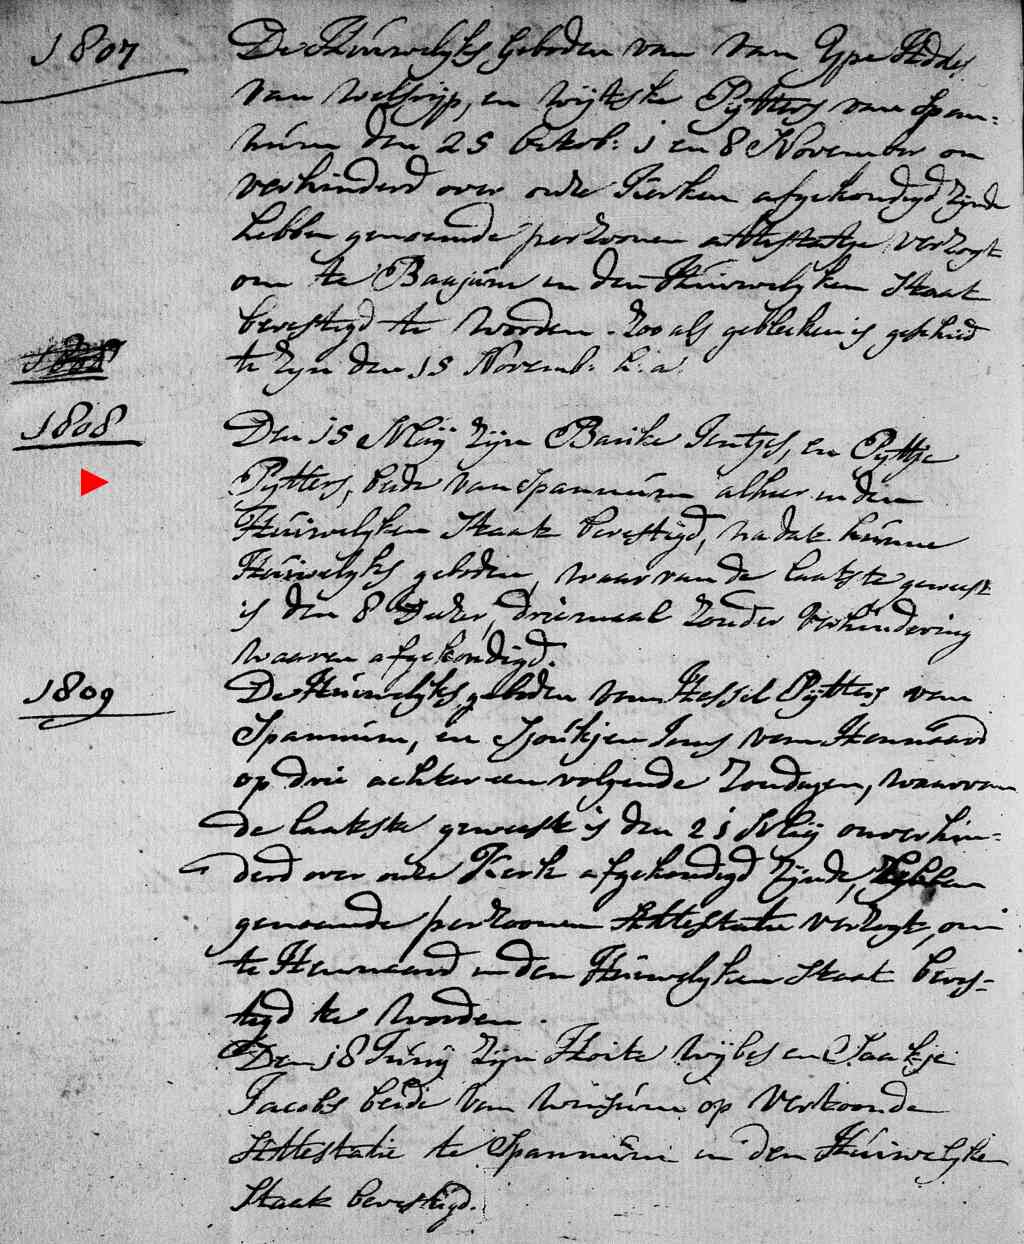 1807
De Huwelyks geboden van van Ype Hiddes
van Welsrijp, en Wijtske Pytters van Span-
num den 25 Octob: 1 en 8 November on
verhinderd over onze Kerken afgekondigd zynde
hebben genoemde perzoonen attestatje verzogt
om te Baajum in den Huwelyken Staat
bevestigd te worden. Zoo als gebleken is geschied
te zyn den 15 Novemb: h: a:
1808
Den 15 Maij zijn Bauke Jentjes, en Pyttje
Pytters, beide van Spannum alhier in den
Huwelyken Staat bevestigd, na dat hunne
Huwelyks geboden, waar van de laatste geweest
is den 8 Dezer, driemaal zonder verhindering
waaren afgekondigd.
1809
De Huwelyks geboden van Hessel Pytters van
Spannum, en Sjoukjen Jans van Hennaard
op drie achter een volgende Zondagen, waarvan
de laatste geweest is den 21 Maij onverhin-
derd over onze Kerk afgekondigd zijnde, hebben
genoemde perzoonen Attestatie verzogt, om
te Hennaard in den Huwelyken Staat beves-
tigd te worden.
Den 18 Junij zyn Hoite Wybes en Saakje
Jacobs beide van Winsum op vertoonde
Attestatie te Spannum in den Huwelyken
Staat bevestigd.